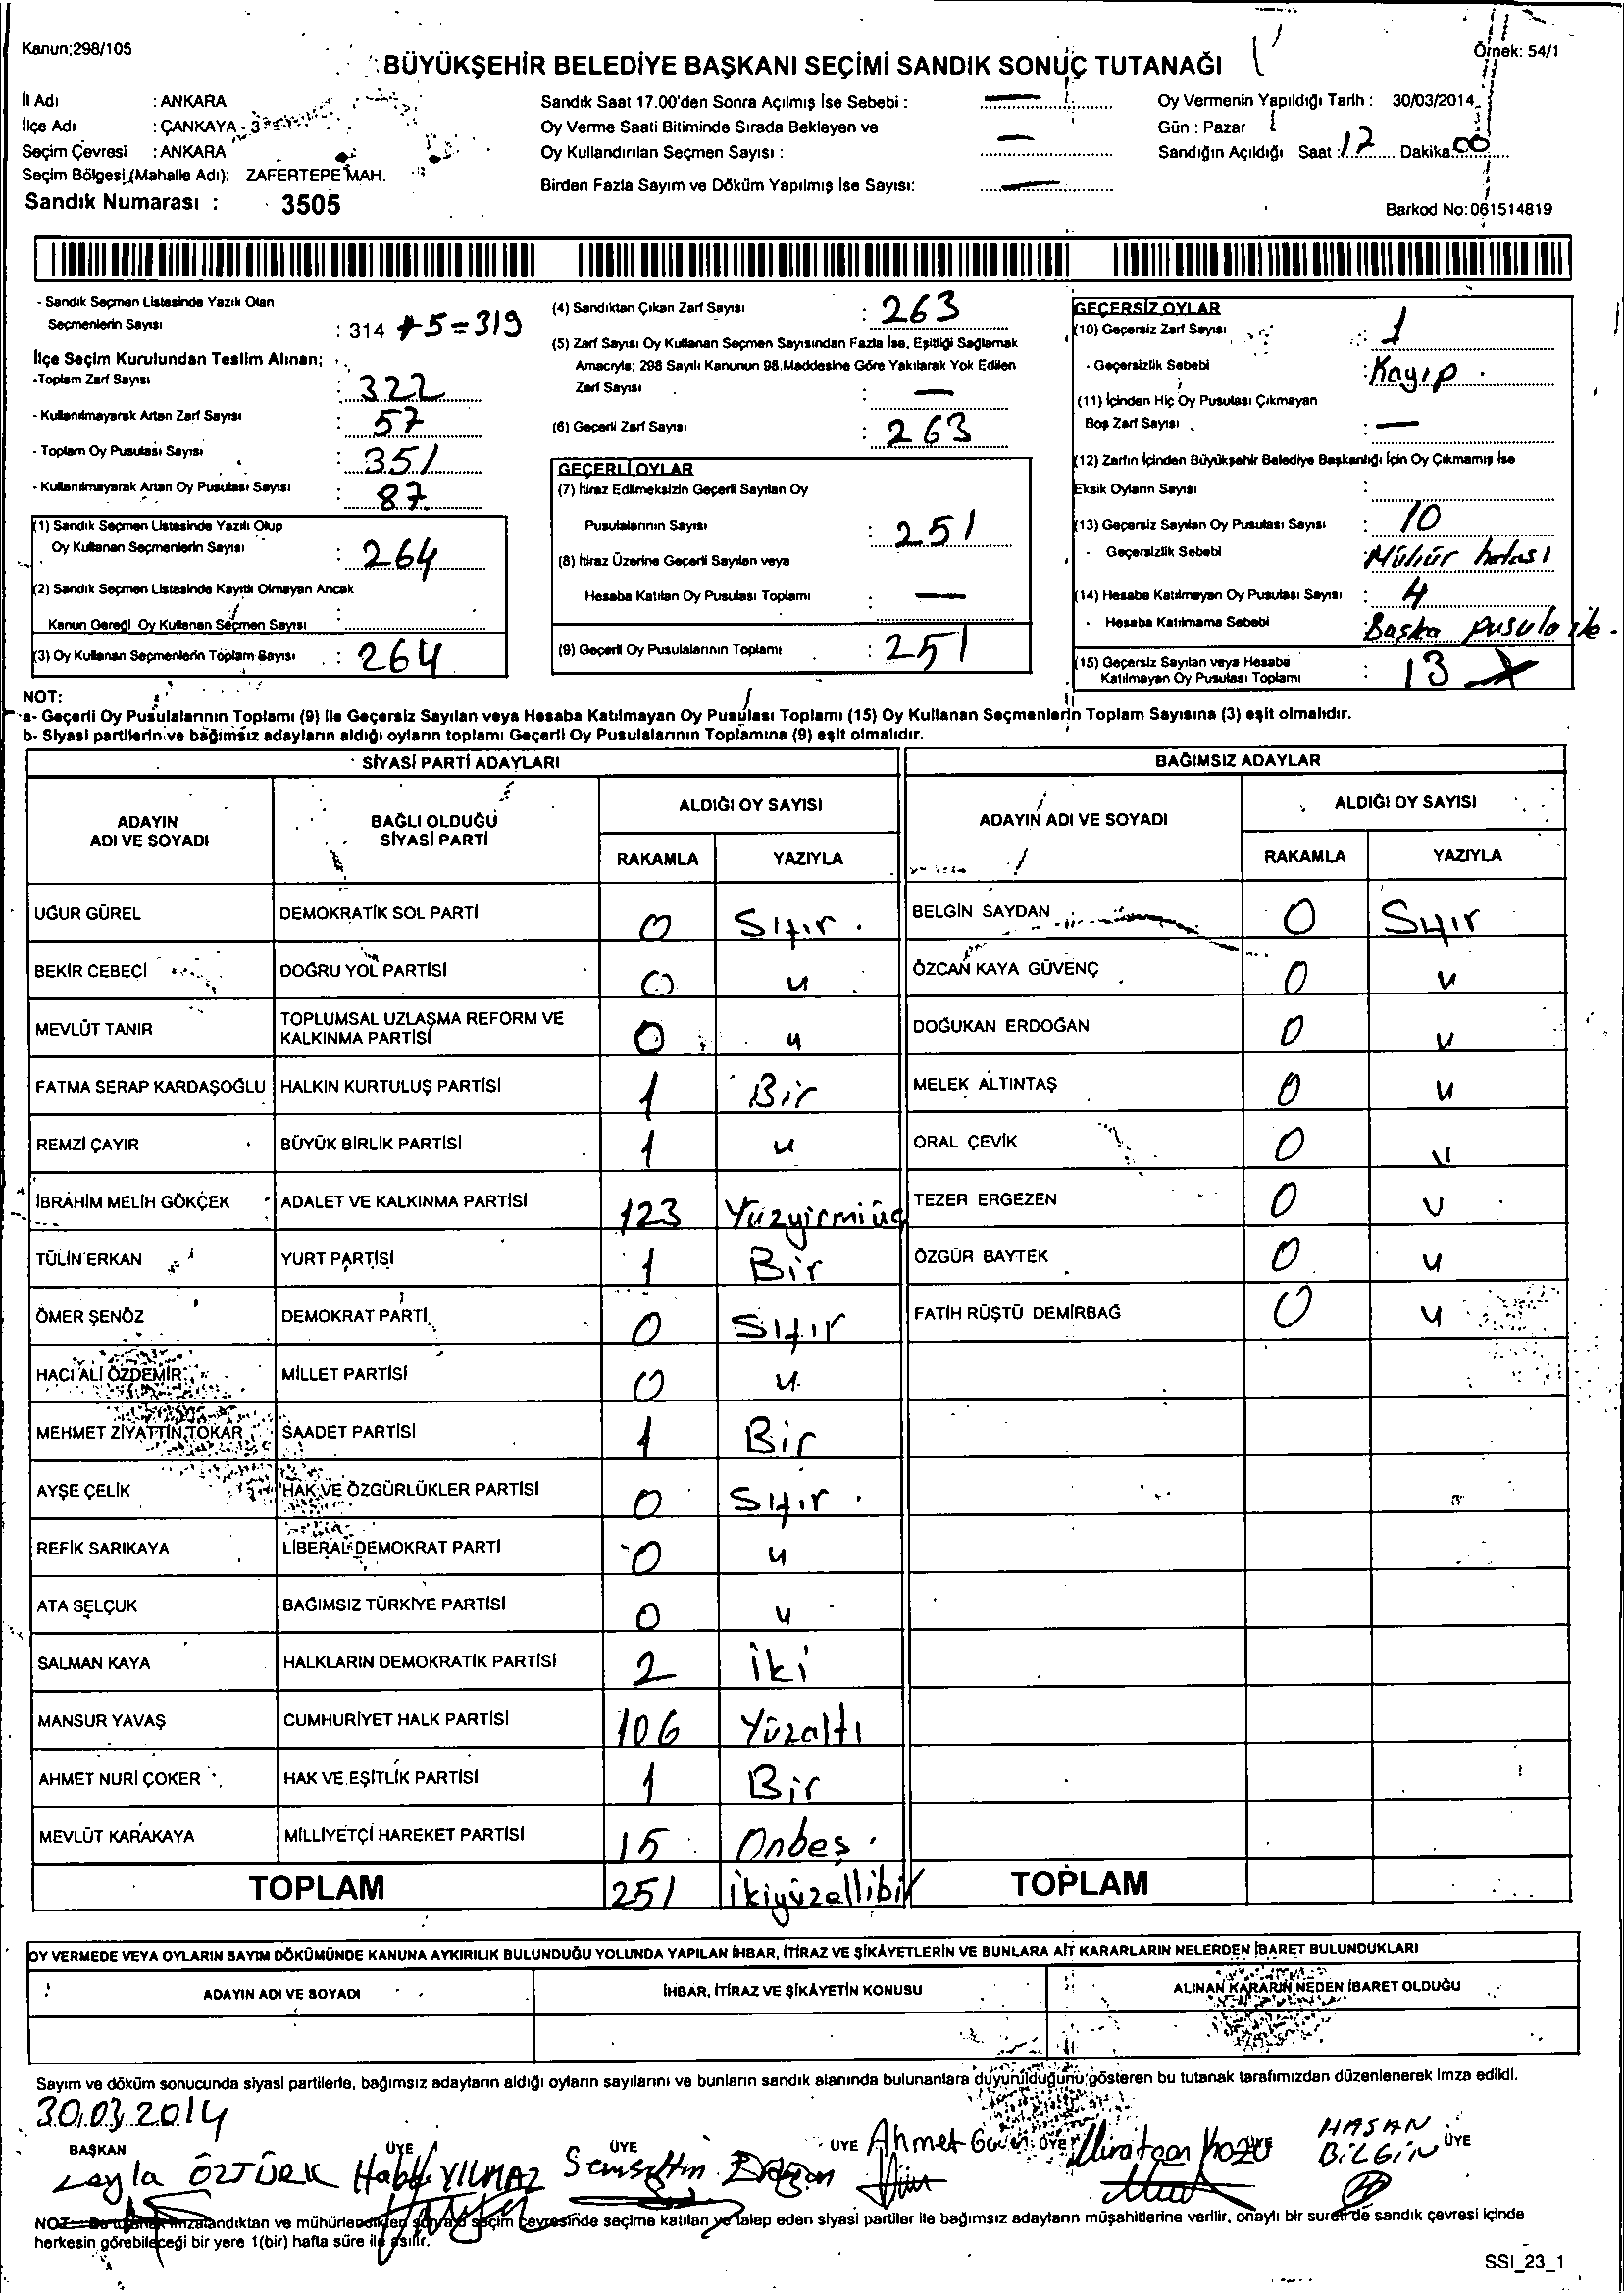 Kanun;298/105
Örnek: 54/1
BÜYÜKŞEHİR BELEDİYE BAŞKANI SEÇİMİ SANDIK SONUÇ TUTANAĞI
İl Adı : ANKARA
İlçe Adı : ÇANKAYA - 3
Seçim Çevresi : ANKARA
Seçim Bölgesi (Mahalle Adı): ZAFERTEPE MAH.
Sandık Numarası : 3505
Sandık Saat 17.00'den Sonra Açılmış İse Sebebi : —
Oy Verme Saati Bitiminde Sırada Bekleyen ve
Oy Kullandırılan Seçmen Sayısı : —
Birden Fazla Sayım ve Döküm Yapılmış İse Sayısı: —
Oy Vermenin Yapıldığı Tarih : 30/03/2014
Gün : Pazar
Sandığın Açıldığı Saat : 17 Dakika 00
Barkod No: 061514819
- Sandık Seçmen Listesinde Yazılı Olan
Seçmenlerin Sayısı : 314 +5=319
İlçe Seçim Kurulundan Teslim Alınan;
-Toplam Zarf Sayısı : 322
- Kullanılmayarak Artan Zarf Sayısı : 57
- Toplam Oy Pusulası Sayısı : 351
- Kullanılmayarak Artan Oy Pusulası Sayısı : 87
(1) Sandık Seçmen Listesinde Yazılı Olup
Oy Kullanan Seçmenlerin Sayısı : 264
(2) Sandık Seçmen Listesinde Kayıtlı Olmayan Ancak
Kanun Gereği Oy Kullanan Seçmen Sayısı :
(3) Oy Kullanan Seçmenlerin Toplam Sayısı : 264
(4) Sandıktan Çıkan Zarf Sayısı : 263
(5) Zarf Sayısı Oy Kullanan Seçmen Sayısından Fazla İse, Eşitliği Sağlamak
Amacıyla; 298 Sayılı Kanunun 98.Maddesine Göre Yakılarak Yok Edilen
Zarf Sayısı : —
(6) Geçerli Zarf Sayısı : 263
GEÇERLİ OYLAR
(7) İtiraz Edilmeksizin Geçerli Sayılan Oy
Pusulalarının Sayısı : 251
(8) İtiraz Üzerine Geçerli Sayılan veya
Hesaba Katılan Oy Pusulası Toplamı : —
(9) Geçerli Oy Pusulalarının Toplamı : 251
GEÇERSİZ OYLAR
(10) Geçersiz Zarf Sayısı : 1
- Geçersizlik Sebebi : Kayıp.
(11) İçinden Hiç Oy Pusulası Çıkmayan
Boş Zarf Sayısı : —
(12) Zarfın İçinden Büyükşehir Belediye Başkanlığı İçin Oy Çıkmamış İse
Eksik Oyların Sayısı :
(13) Geçersiz Sayılan Oy Pusulası Sayısı : 10
- Geçersizlik Sebebi Mühür hatası
(14) Hesaba Katılmayan Oy Pusulası Sayısı : 4
- Hesaba Katılmama Sebebi Başka pusula ile.
(15) Geçersiz Sayılan veya Hesaba
Katılmayan Oy Pusulası Toplamı : 13
NOT:
a- Geçerli Oy Pusulalarının Toplamı (9) ile Geçersiz Sayılan veya Hesaba Katılmayan Oy Pusulası Toplamı (15) Oy Kullanan Seçmenlerin Toplam Sayısına (3) eşit olmalıdır.
b- Siyasi partilerin ve bağımsız adayların aldığı oyların toplamı Geçerli Oy Pusulalarının Toplamına (9) eşit olmalıdır.
SİYASİ PARTİ ADAYLARI
ADAYIN ADI VE SOYADI
BAĞLI OLDUĞU SİYASİ PARTİ
ALDIĞI OY SAYISI
RAKAMLA YAZIYLA
UĞUR GÜREL DEMOKRATİK SOL PARTİ 0 Sıfır.
BEKİR CEBECİ DOĞRU YOL PARTİSİ 0 "
MEVLÜT TANIR TOPLUMSAL UZLAŞMA REFORM VE KALKINMA PARTİSİ 0 "
FATMA SERAP KARDAŞOĞLU HALKIN KURTULUŞ PARTİSİ 1 Bir
REMZİ ÇAYIR BÜYÜK BİRLİK PARTİSİ 1 "
İBRAHİM MELİH GÖKÇEK ADALET VE KALKINMA PARTİSİ 123 Yüzyirmiüç
TÜLİN ERKAN YURT PARTİSİ 1 Bir
ÖMER ŞENÖZ DEMOKRAT PARTİ 0 Sıfır
HACI ALİ ÖZDEMİR MİLLET PARTİSİ 0 "
MEHMET ZİYATTİN TOKAR SAADET PARTİSİ 1 Bir
AYŞE ÇELİK HAK VE ÖZGÜRLÜKLER PARTİSİ 0 Sıfır.
REFİK SARIKAYA LİBERAL DEMOKRAT PARTİ 0 "
ATA SELÇUK BAĞIMSIZ TÜRKİYE PARTİSİ 0 "
SALMAN KAYA HALKLARIN DEMOKRATİK PARTİSİ 2 iki
MANSUR YAVAŞ CUMHURİYET HALK PARTİSİ 106 Yüzaltı
AHMET NURİ ÇOKER HAK VE EŞİTLİK PARTİSİ 1 Bir
MEVLÜT KARAKAYA MİLLİYETÇİ HAREKET PARTİSİ 15 Onbeş.
TOPLAM 251 ikiyüzellibir
BAĞIMSIZ ADAYLAR
ADAYIN ADI VE SOYADI
ALDIĞI OY SAYISI
RAKAMLA YAZIYLA
BELGİN SAYDAN 0 Sıfır
ÖZCAN KAYA GÜVENÇ 0 "
DOĞUKAN ERDOĞAN 0 "
MELEK ALTINTAŞ 0 "
ORAL ÇEVİK 0 "
TEZER ERGEZEN 0 "
ÖZGÜR BAYTEK 0 "
FATİH RÜŞTÜ DEMİRBAĞ 0 "
TOPLAM
OY VERMEDE VEYA OYLARIN SAYIM DÖKÜMÜNDE KANUNA AYKIRILIK BULUNDUĞU YOLUNDA YAPILAN İHBAR, İTİRAZ VE ŞİKÂYETLERİN VE BUNLARA AİT KARARLARIN NELERDEN İBARET BULUNDUKLARI
ADAYIN ADI VE SOYADI İHBAR, İTİRAZ VE ŞİKÂYETİN KONUSU ALINAN KARARIN NEDEN İBARET OLDUĞU
Sayım ve döküm sonucunda siyasi partilerle, bağımsız adayların aldığı oyların sayılarını ve bunların sandık alanında bulunanlara duyurulduğunu gösteren bu tutanak tarafımızdan düzenlenerek imza edildi.
30.03.2014
BAŞKAN ÜYE ÜYE ÜYE ÜYE ÜYE
Leyla ÖZTÜRK YILMAZ Ahmet HASAN BİLGİN
NOT: Bu tutanak imzalandıktan ve mühürlendikten sonra o seçim çevresinde seçime katılan ve talep eden siyasi partiler ile bağımsız adayların müşahitlerine verilir, onaylı bir sureti de sandık çevresi içinde
herkesin görebileceği bir yere 1(bir) hafta süre ile asılır.
SSI_23_1